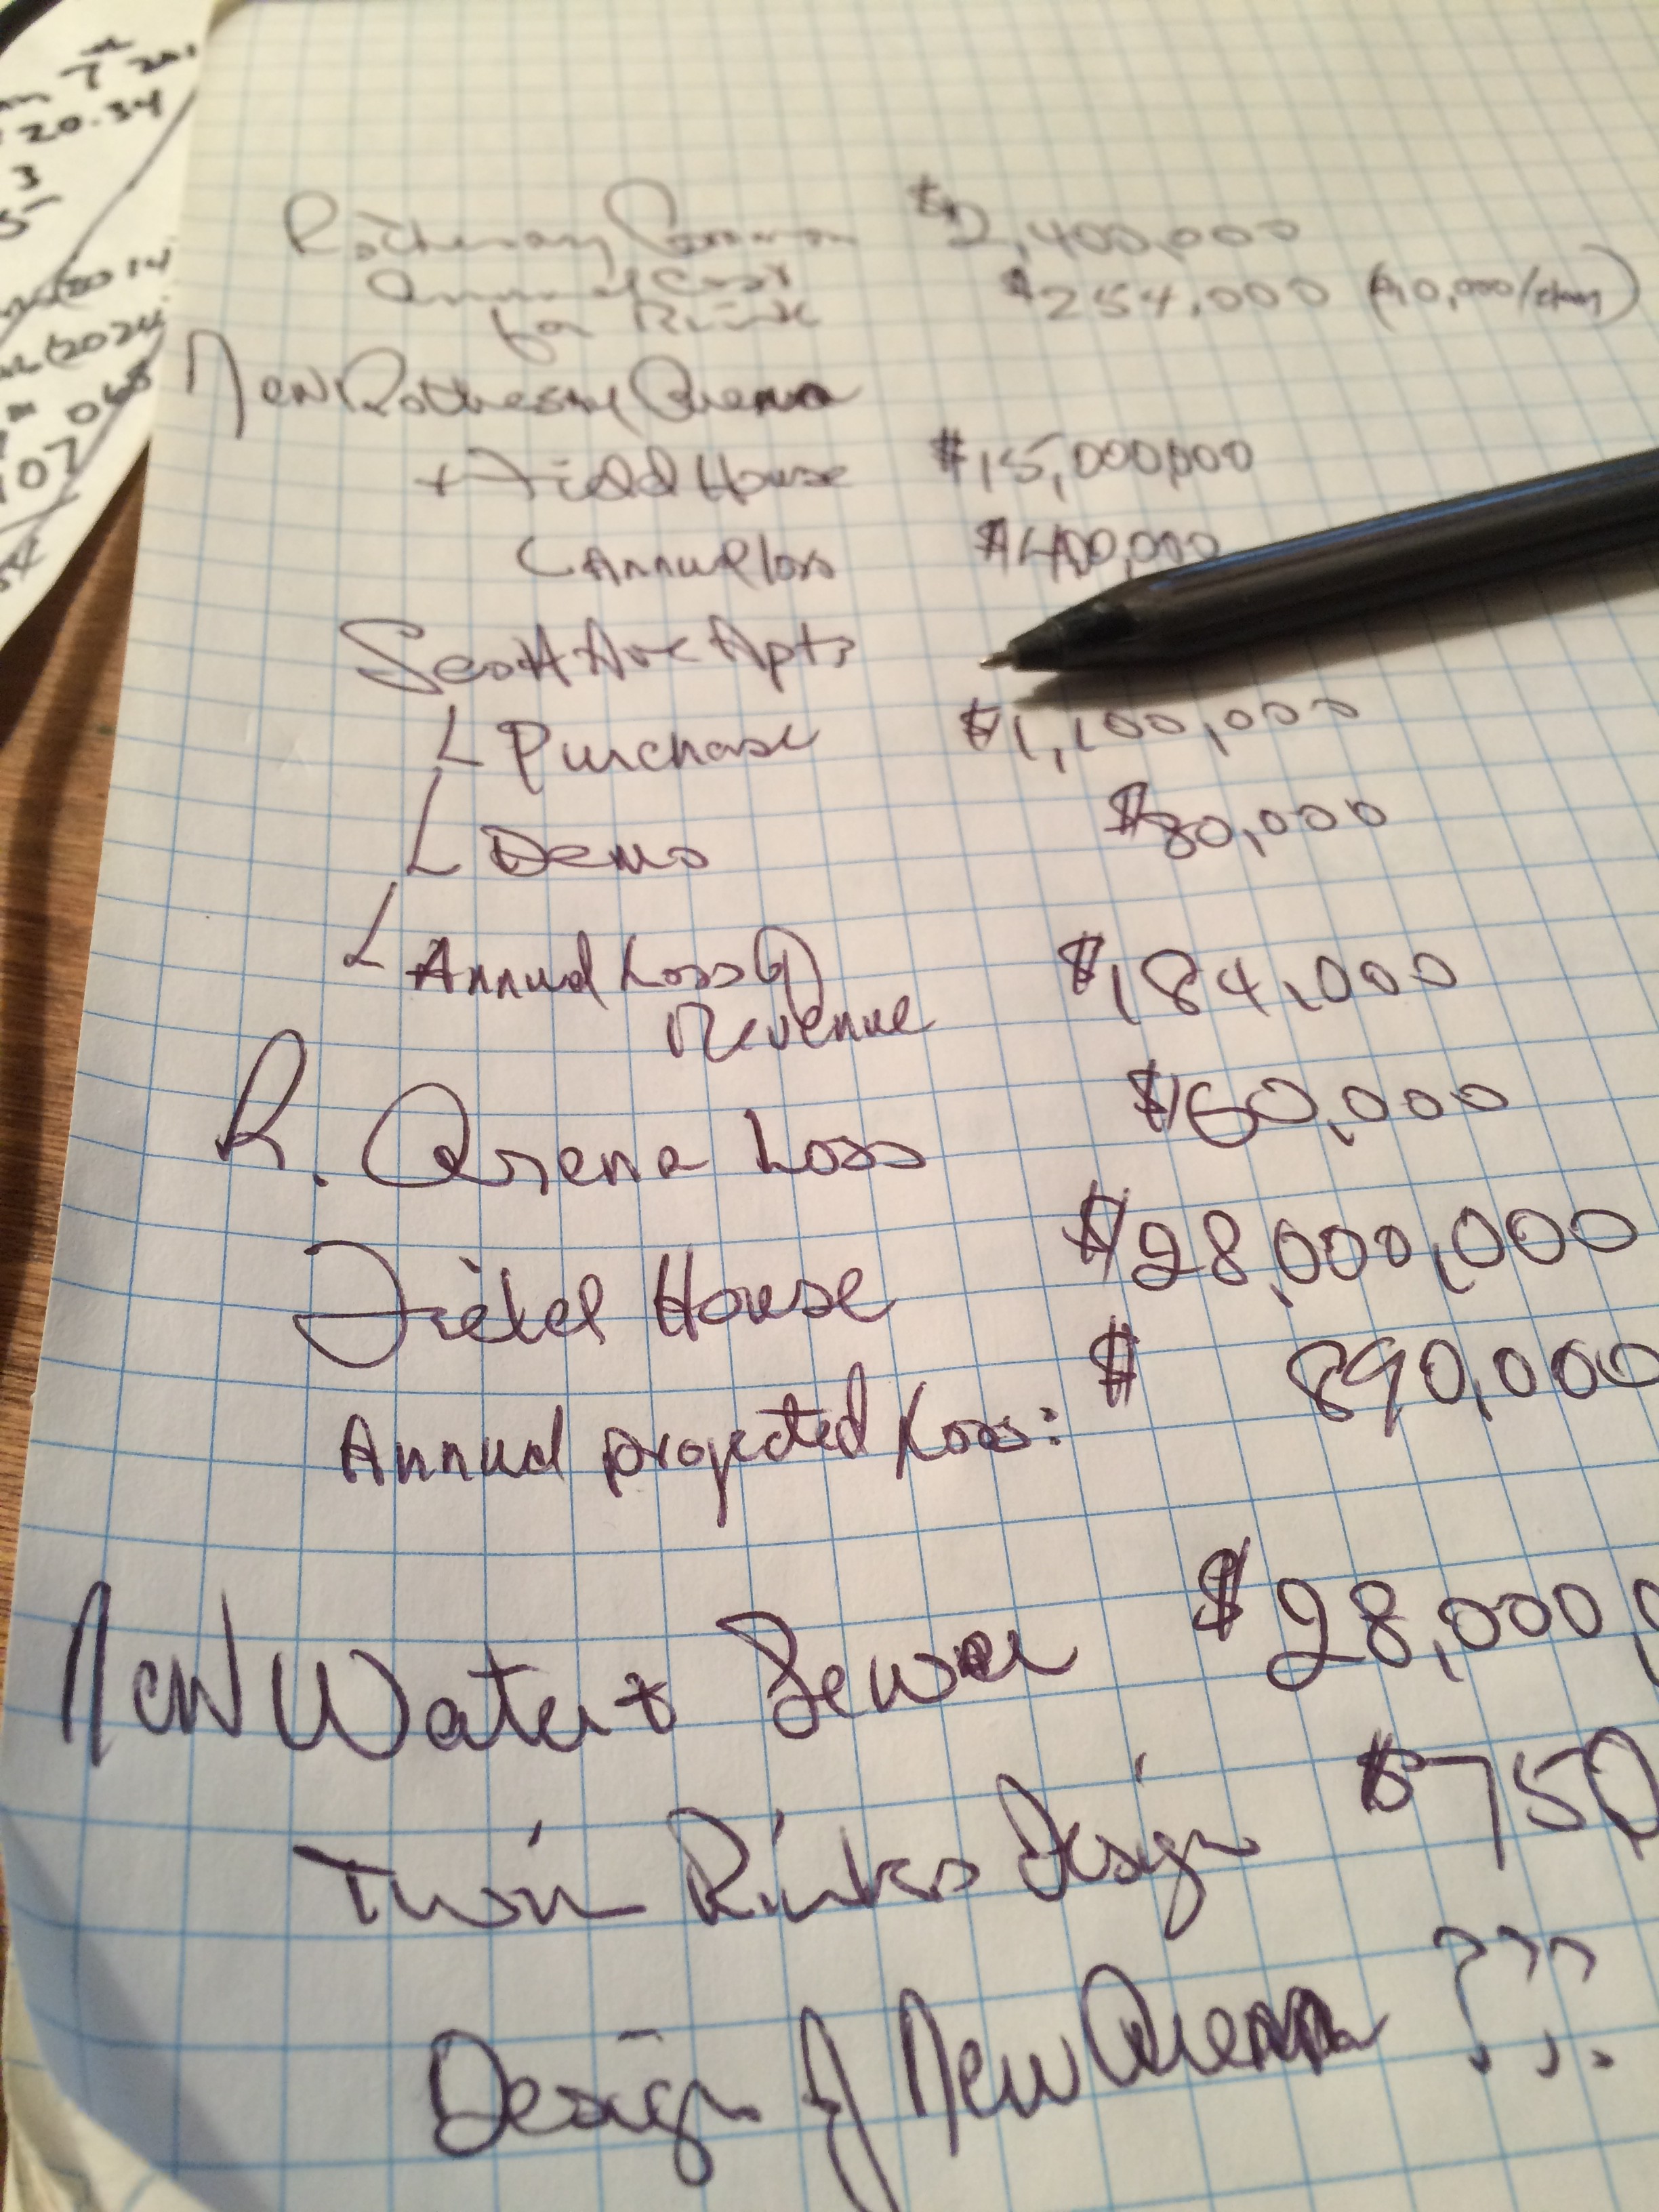 7 201
20.34
3
5
(2014
(2024
068
107
Rothesay Common $2,400,000
Annual Cost $254,000 ($10,000/
for Rink
New Rothesay Arena
+ Field House $15,000,000
Annual loss $400,000
Scott Ave Apts
Purchase $1,100,000
Demo $80,000
Annual Loss of $184,000
Revenue
R. Arena Loss $60,000
Field House $28,000,000
Annual projected Loss: $ 890,000
New Water + Sewer $28,000,0
Twin Rinks Design $750
Design of New Arena ???